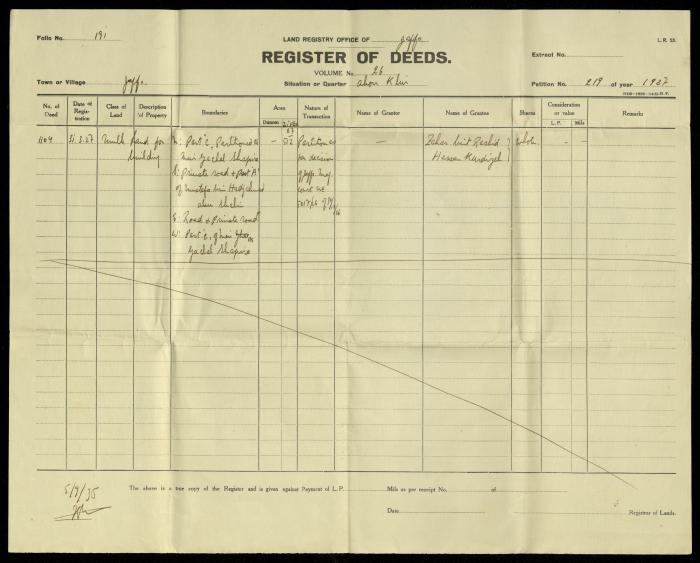 Folio No. 191
LAND REGISTRY OFFICE OF Jaffa
L.R. 55.
REGISTER OF DEEDS.
Extract No.
VOLUME No. 26
Town or Village Jaffa
Situation or Quarter
Petition No. 219 of year 1937
No. of Deed
Date of Registration
Class of Land
Description of Property
Boundaries
Area
Dunums
Nature of Transaction
Name of Grantor
Name of Grantee
Shares
Consideration or value
L.P.
Mils
Remarks
1104
31.3.27
Mulk
Land for building
N: Part 'C, Partitioned to
Meir Yechel Shapira
S: Private road & part A'
of Mustafa bin
E: Road & Private road
W: Part 'C, of Meir
Yechel Shapira
— 52
Partition
on decision
of Jaffa Mag
court
—
Zahar bint Rashid
Hassan
whole
- -
5/9/35
The above is a true copy of the Register and is given against Payment of L.P.
Mils as per receipt No.
of
Date
Registrar of Lands.